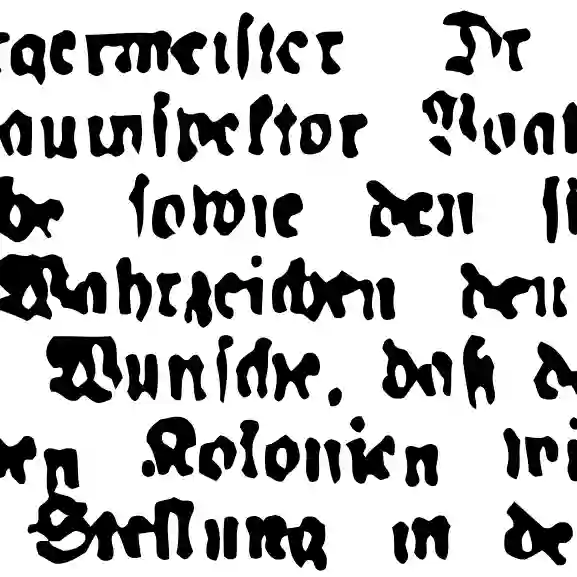 rgermeister Dr
auinspektor
be sowie den
Wahrzeichen den
Wunsche, daß
en Kolonien
Stellung in de